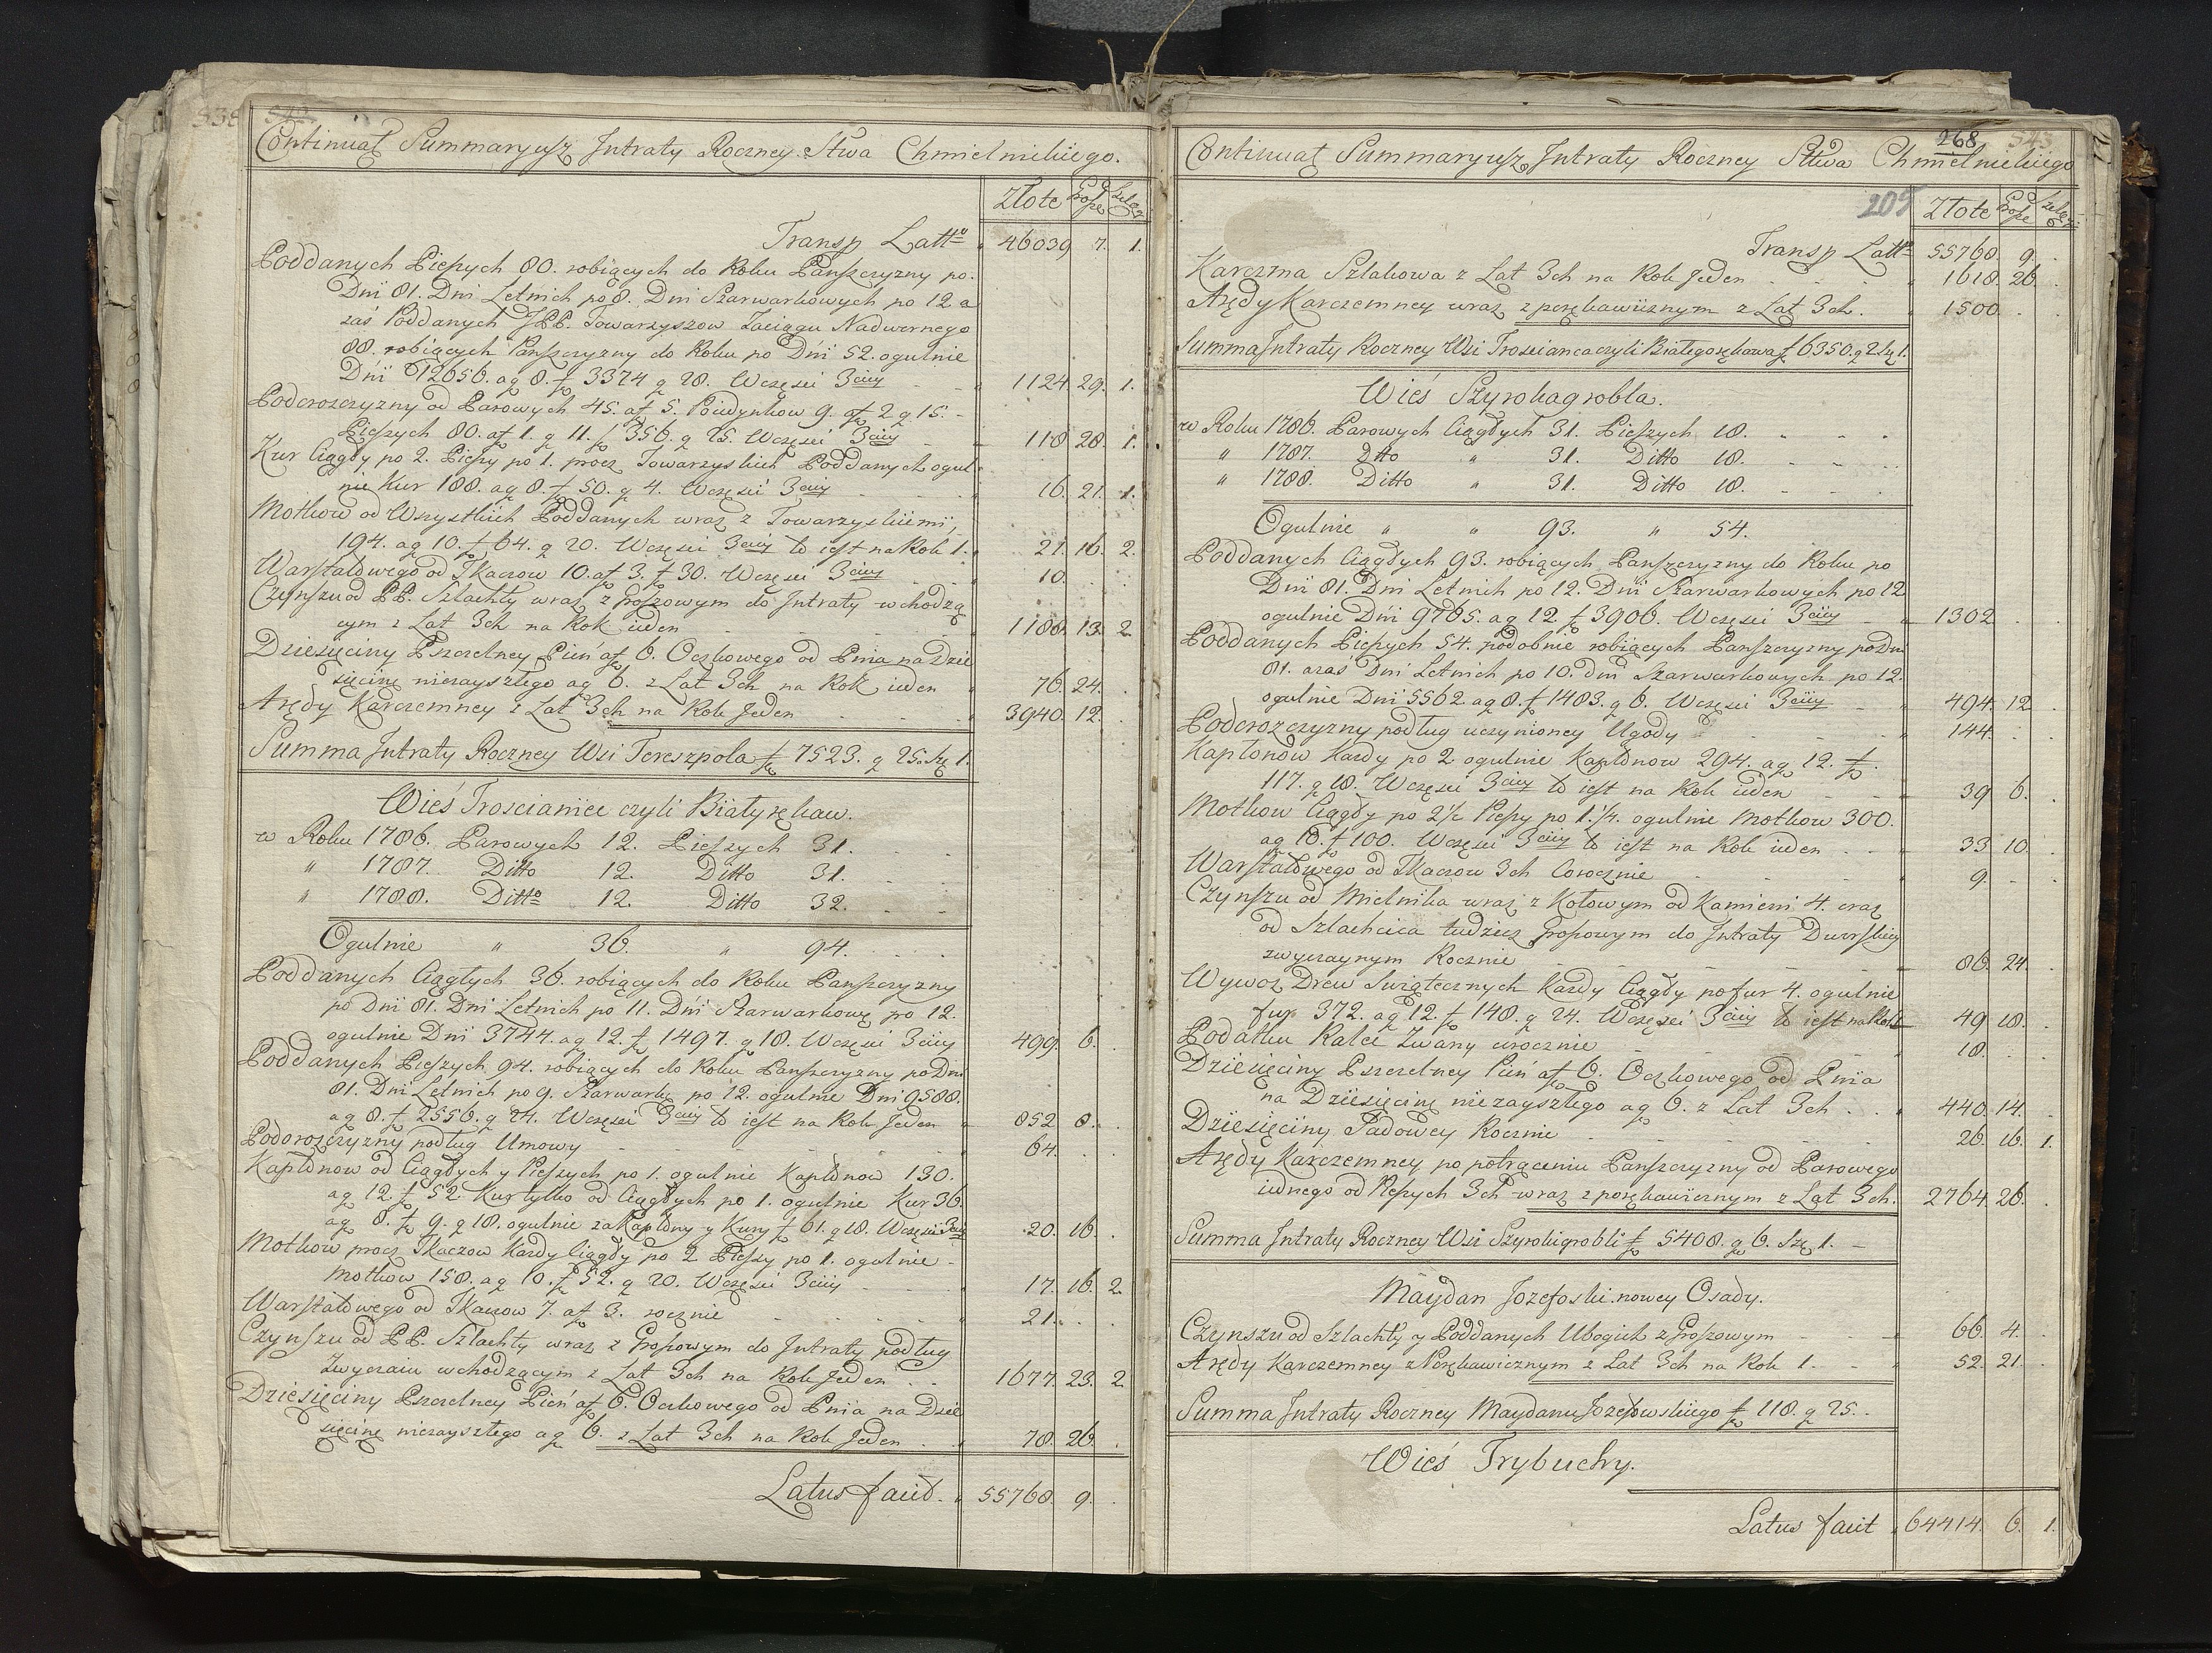 538 542
Continuaţ Summaryusz Jntraty Roczney Stwa Chmielnickiego.
Złote Grosze Szeląg
Transp Latto 46039 7. 1.
Poddanych Pieszych 80. robiących do Roku Panszczyzny po.
Dni 81. Dni Letnich po 8. Dni Szarwarkowych po 12 a
zaś Poddanych JPP. Towarzyszow Zaciągu Nadwornego
88. robiących Panszczyzny do Roku po Dni 52. ogulnie
Dni 12656. a g 8. f 3374 g 28. Wczęsci 3ciey 1124. 29. 1.
Podorosczyzny od Parowych 45. a f 5. Poiedynkow 9. a f 2 g 15.
Pieszych 80. a f 1. g 11. f 356. g 25. Wczęsci 3ciey 118 28. 1.
Kur Ciągły po 2. Pieszy po 1. procz Towarzyskich Poddanych ogul
nie Kur 188. a g 8. f 50. g 4. Wczęsci 3ciey 16. 21. 1.
Motkow od Wszystkich Poddanych wraz z Towarzyskiemi,
194. a g 10. f 64. g 20. Wczęsci 3ciey to iest na Rok 1. 21. 16. 2.
Warstatowego od Tkaczow 10. a f 3. f 30. Wczęsci 3ciey 10.
Czynszu od PP. Szlachty wraz z Groszowym do Jntraty wchodzą
cym z Lat 3ch na Rok ieden 1188. 13. 2
Dziesięciny Pszczelney Pień a f 6. Oczkowego od Pnia na Dzie
sięcinę niezayszłego a g 6. z Lat 3ch na Rok ieden 76. 24.
Arędy Karczemney z Lat 3ch na Rok Jeden 3940. 12.
Summa Jntraty Roczney Wsi Tereszpola f 7523. g 25. Szę 1.
Wieś Trościaniec czyli Białyrękaw.
w Roku 1786. Parowych 12. Pieszych 31.
" 1787. Ditto 12. Ditto 31.
" 1788. Ditto 12. Ditto 32.
Ogulnie " 36. " 94.
Poddanych Ciągłych 36. robiących do Roku Panszczyzny
po Dni 81. Dni Letnich po 11. Dni Szarwarkowę po 12.
ogulnie Dni 3744. a g 12. f 1497. g 18. Wczęsci 3ciey 499. 6.
Poddanych Pieszych 94. robiących do Roku Panszczyzny po Dni
81. Dni Letnich po 9. Szarwarkę po 12. ogulnie Dni 9588.
a g 8. f 2556. g 24. Wczęsci 3ciey to iest na Rok Jeden 852 8.
Podorosczyzny podług Umowy 64.
Kapłonow od Ciągłych y Pieszych po 1. ogulnie Kapłonow 130.
a g 12. f 52. Kur tylko od Ciągłych po 1. ogulnie Kur 36.
a g 8. f 9. g 18. ogulnie za Kapłony y Kury f 61. g 18. Wczęsci 3ciey 20. 16.
Motkow procz Tkaczow Kazdy Ciągły po 2 Pieszy po 1. ogulnie
Motkow 158. a g 10. f 52. g 20. Wczęsci 3ciey 17. 16. 2
Warstatowego od Tkaczow 7. a f 3. rocznie 21.
Czynszu od PP. Szlachty wraz z Groszowym do Jntraty podług
Zwyczaiu wchodzącym z Lat 3ch na Rok Jeden 1677. 23. 2
Dziesięciny Pszczelney Pień a f 6. Oczkowego od Pnia na Dzie
sięcinę niezaysztego a g 6. z Lat 3ch na Rok Jeden 78. 26.
Latus facit. 55768. 9.
268 543
Continuaţ Summaryusz Jntraty Roczney Sttwa Chmielnickiego
205
Złote Grosze Szeląg
Transp Latto 55768. 9.
Karczma Szlakowa z Lat 3ch na Rok Jeden 1618. 26.
Arędy Karczemney wraz z porękawicznym z Lat 3ch. 1500.
Summa Jntraty Roczney Wsi Trosciańca czyli Białegorękawa f 6350. g 2. Szę 1.
Wieś Szyrokagrobla.
w Roku 1786. Parowych Ciągłych 31. Pieszych 18.
" 1787. Dtto " 31. Ditto 18.
" 1788. Ditto " 31. Ditto 18.
Ogulnie " " 93. " 54.
Poddanych Ciągłych 93. robiących Panszczyzny do Roku po
Dni 81. Dni Letnich po 12. Dni Szarwarkowych po 12
ogulnie Dni 9765. a g 12 f 3906. Wczęsci 3ciey 1302
Poddanych Pieszych 54. podobnie robiących Panszczyzny po Dni
81. azaś Dni Letnich po 10. dni Szarwarkowych po 12.
ogulnie Dni 5562. a g 8. f 1483. g 6. Wczęsci 3ciey 494. 12
Podorozczyzny podług uczynioney Ugody 144.
Kapłonow Kazdy po 2 ogulnie Kapłonow 294. a g 12. f
117. g 18. Wczęsci 3ciey to iest na Rok ieden 39 6.
Motkow Ciągły po 2½ Pieszy po 1.¼. ogulnie Motkow 300.
a g 10. f 100. Wczęsci 3ciey to iest na Rok ieden 33 10.
Warstatowego od Tkaczow 3ch Corocznie 9.
Czynszu od Mielnika wraz z Kołowym od Kamieni 4. oraz
od Szlachcica tudziez Groszowym do Jntraty Dworskiey
zwyczaynym Rocznie 86. 24.
Wywoz Drew Swiątecznych Kazdy Ciągły po fur 4. ogulnie
fur 372. a g 12. f 148. g 24. Wczęsci 3ciey to iest na Rok 49 18.
Podatku Ralec Zwany corocznie 18.
Dziesięciny Pszczelney Pień a f 6. Oczkowego od Pnia
na Dziesięcinę niezaysztego a g 6. z Lat 3ch 440. 14.
Dziesięciny Sadowey Rocznie 26. 16. 1.
Arędy Karczemney po potrąceniu Panszczyzny od Parowego
iednego od Pieszych 3ch wraz z porękawicznym z Lat 3ch. 2764. 26.
Summa Jntraty Roczney Wsi Szyrokigrobli f 5408. g 6. Szę 1.
Maydan Jozefoski. nowey Osady.
Czynszu od Szlachty y Poddanych Ubogich z Groszowym 66. 4.
Arędy Karczemney z Porękawicznym z Lat 3ch na Rok 1. 52. 21.
Summa Jntraty Roczney Maydanu Jozefowskiego f 118. g 25.
Wieś Trybuchy.
Latus facit 64414. 6. 1.